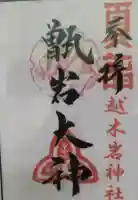 参拝
越木岩神社
甑岩大神